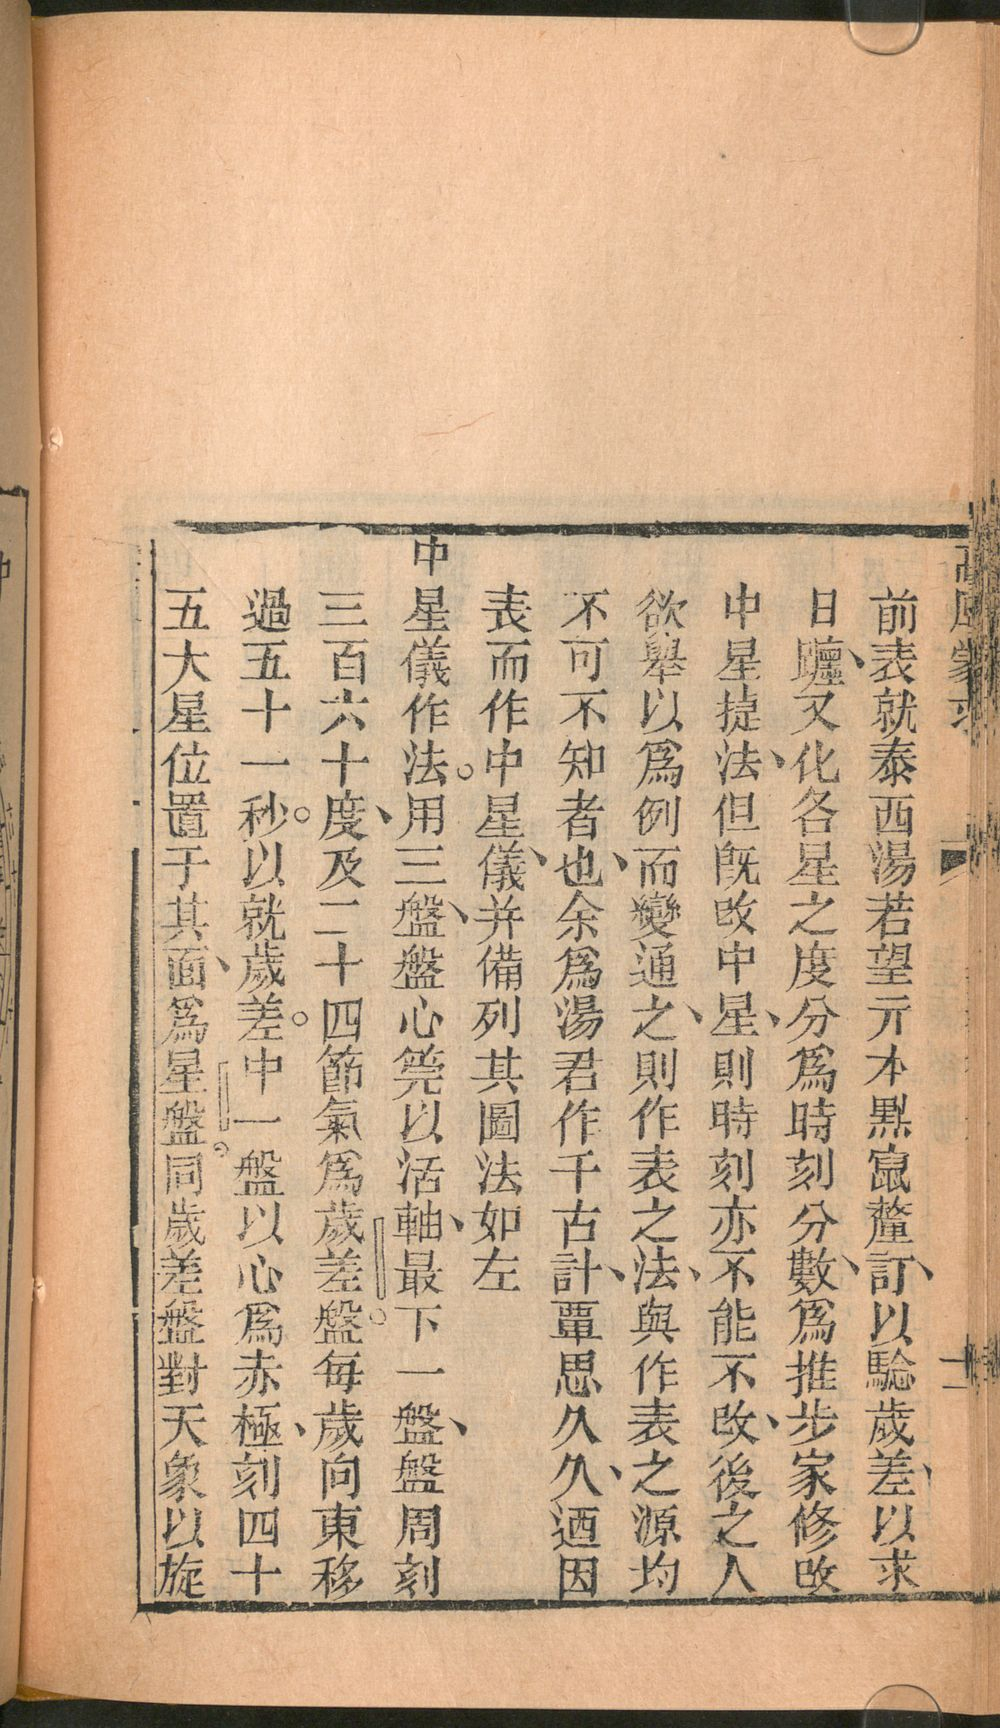 前表就泰西湯若望亓本㸃竄釐訂、以驗歲差、以求
日躔、又化各星之度分爲時刻分數、爲推步家修改
中星捷法、但旣改中星、則時刻亦不能不改、後之人
欲舉以爲例而變通之、則作表之法、與作表之源均
不可不知者也、余爲湯君作千古計、覃思久久、迺因
表而作中星儀、并備列其圖法如左
中星儀作法。用三盤、盤心筦以活軸、最下一盤、盤周刻
三百六十度、及二十四節氣爲歲差盤。每歲向東移
過五十一秒。以就歲差。中一盤以心爲赤極、刻四十
五大星位置于其面、爲星盤。同歲差盤對天象以旋